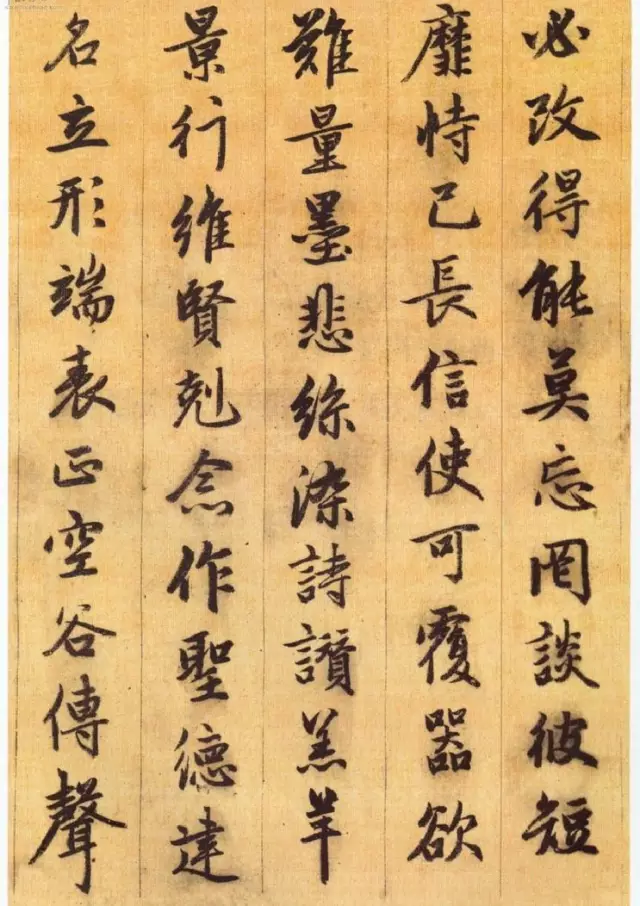 必改得能莫忘罔談彼短
靡恃己長信使可覆器欲
難量墨悲絲染詩讚羔羊
景行維賢剋念作聖德建
名立形端表正空谷傳聲